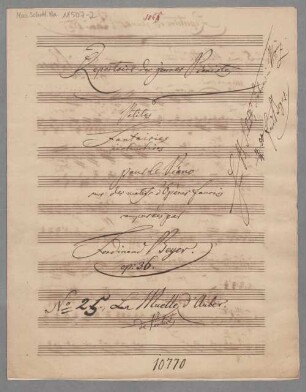 Mus. Schott. Ha 11507-2
Répertoire des jeunes Pianistes
Petites
Fantaisies
instructives
pour le Piano
sur des motifs d'Opéras favoris
composées par
Ferdinand Beyer.
op: 36.
No 25. La Muette d'Auber.
de Portici
10770